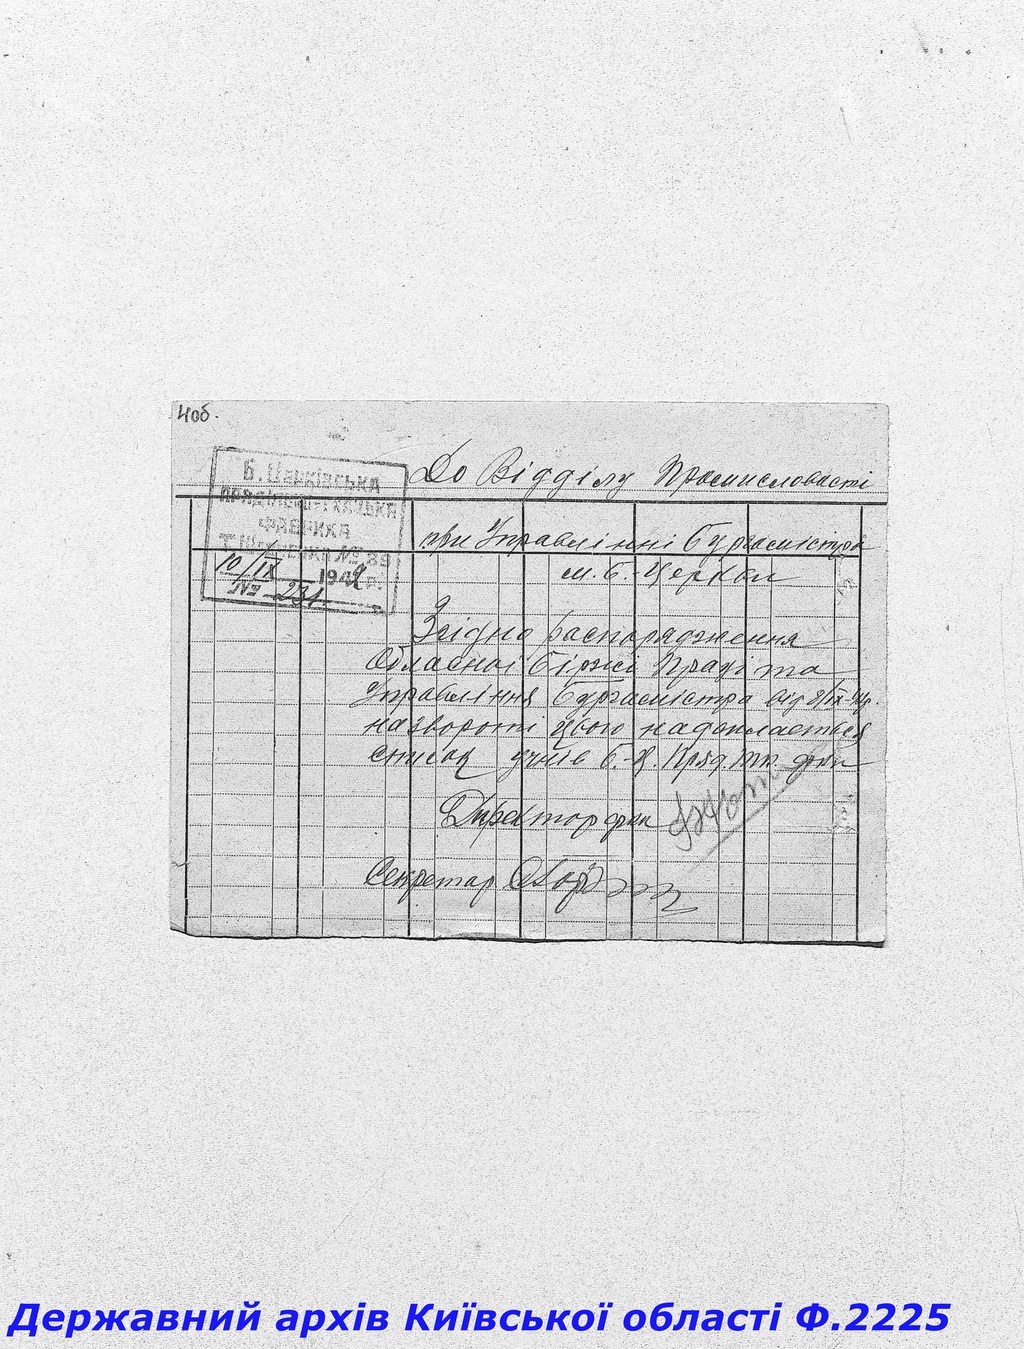 4об.
Б. Церківська
прядільно-ткацька
фабрика
Т. Шевченка № 89
10/IX 1942 р.
№ 231.
До Відділу Промисловасті
при Управлінні Бургамістра
м. Б.-Церкви
Згідно распорядження
Обласної біржі Праці та
Управління Бургамістра від 8/IX-42р.
на звороті цього надсилається
список учнів Б.-Ц. Пряд. тк. ф-ки
Директор ф-ки
Секретар
Державний архів Київської області Ф.2225